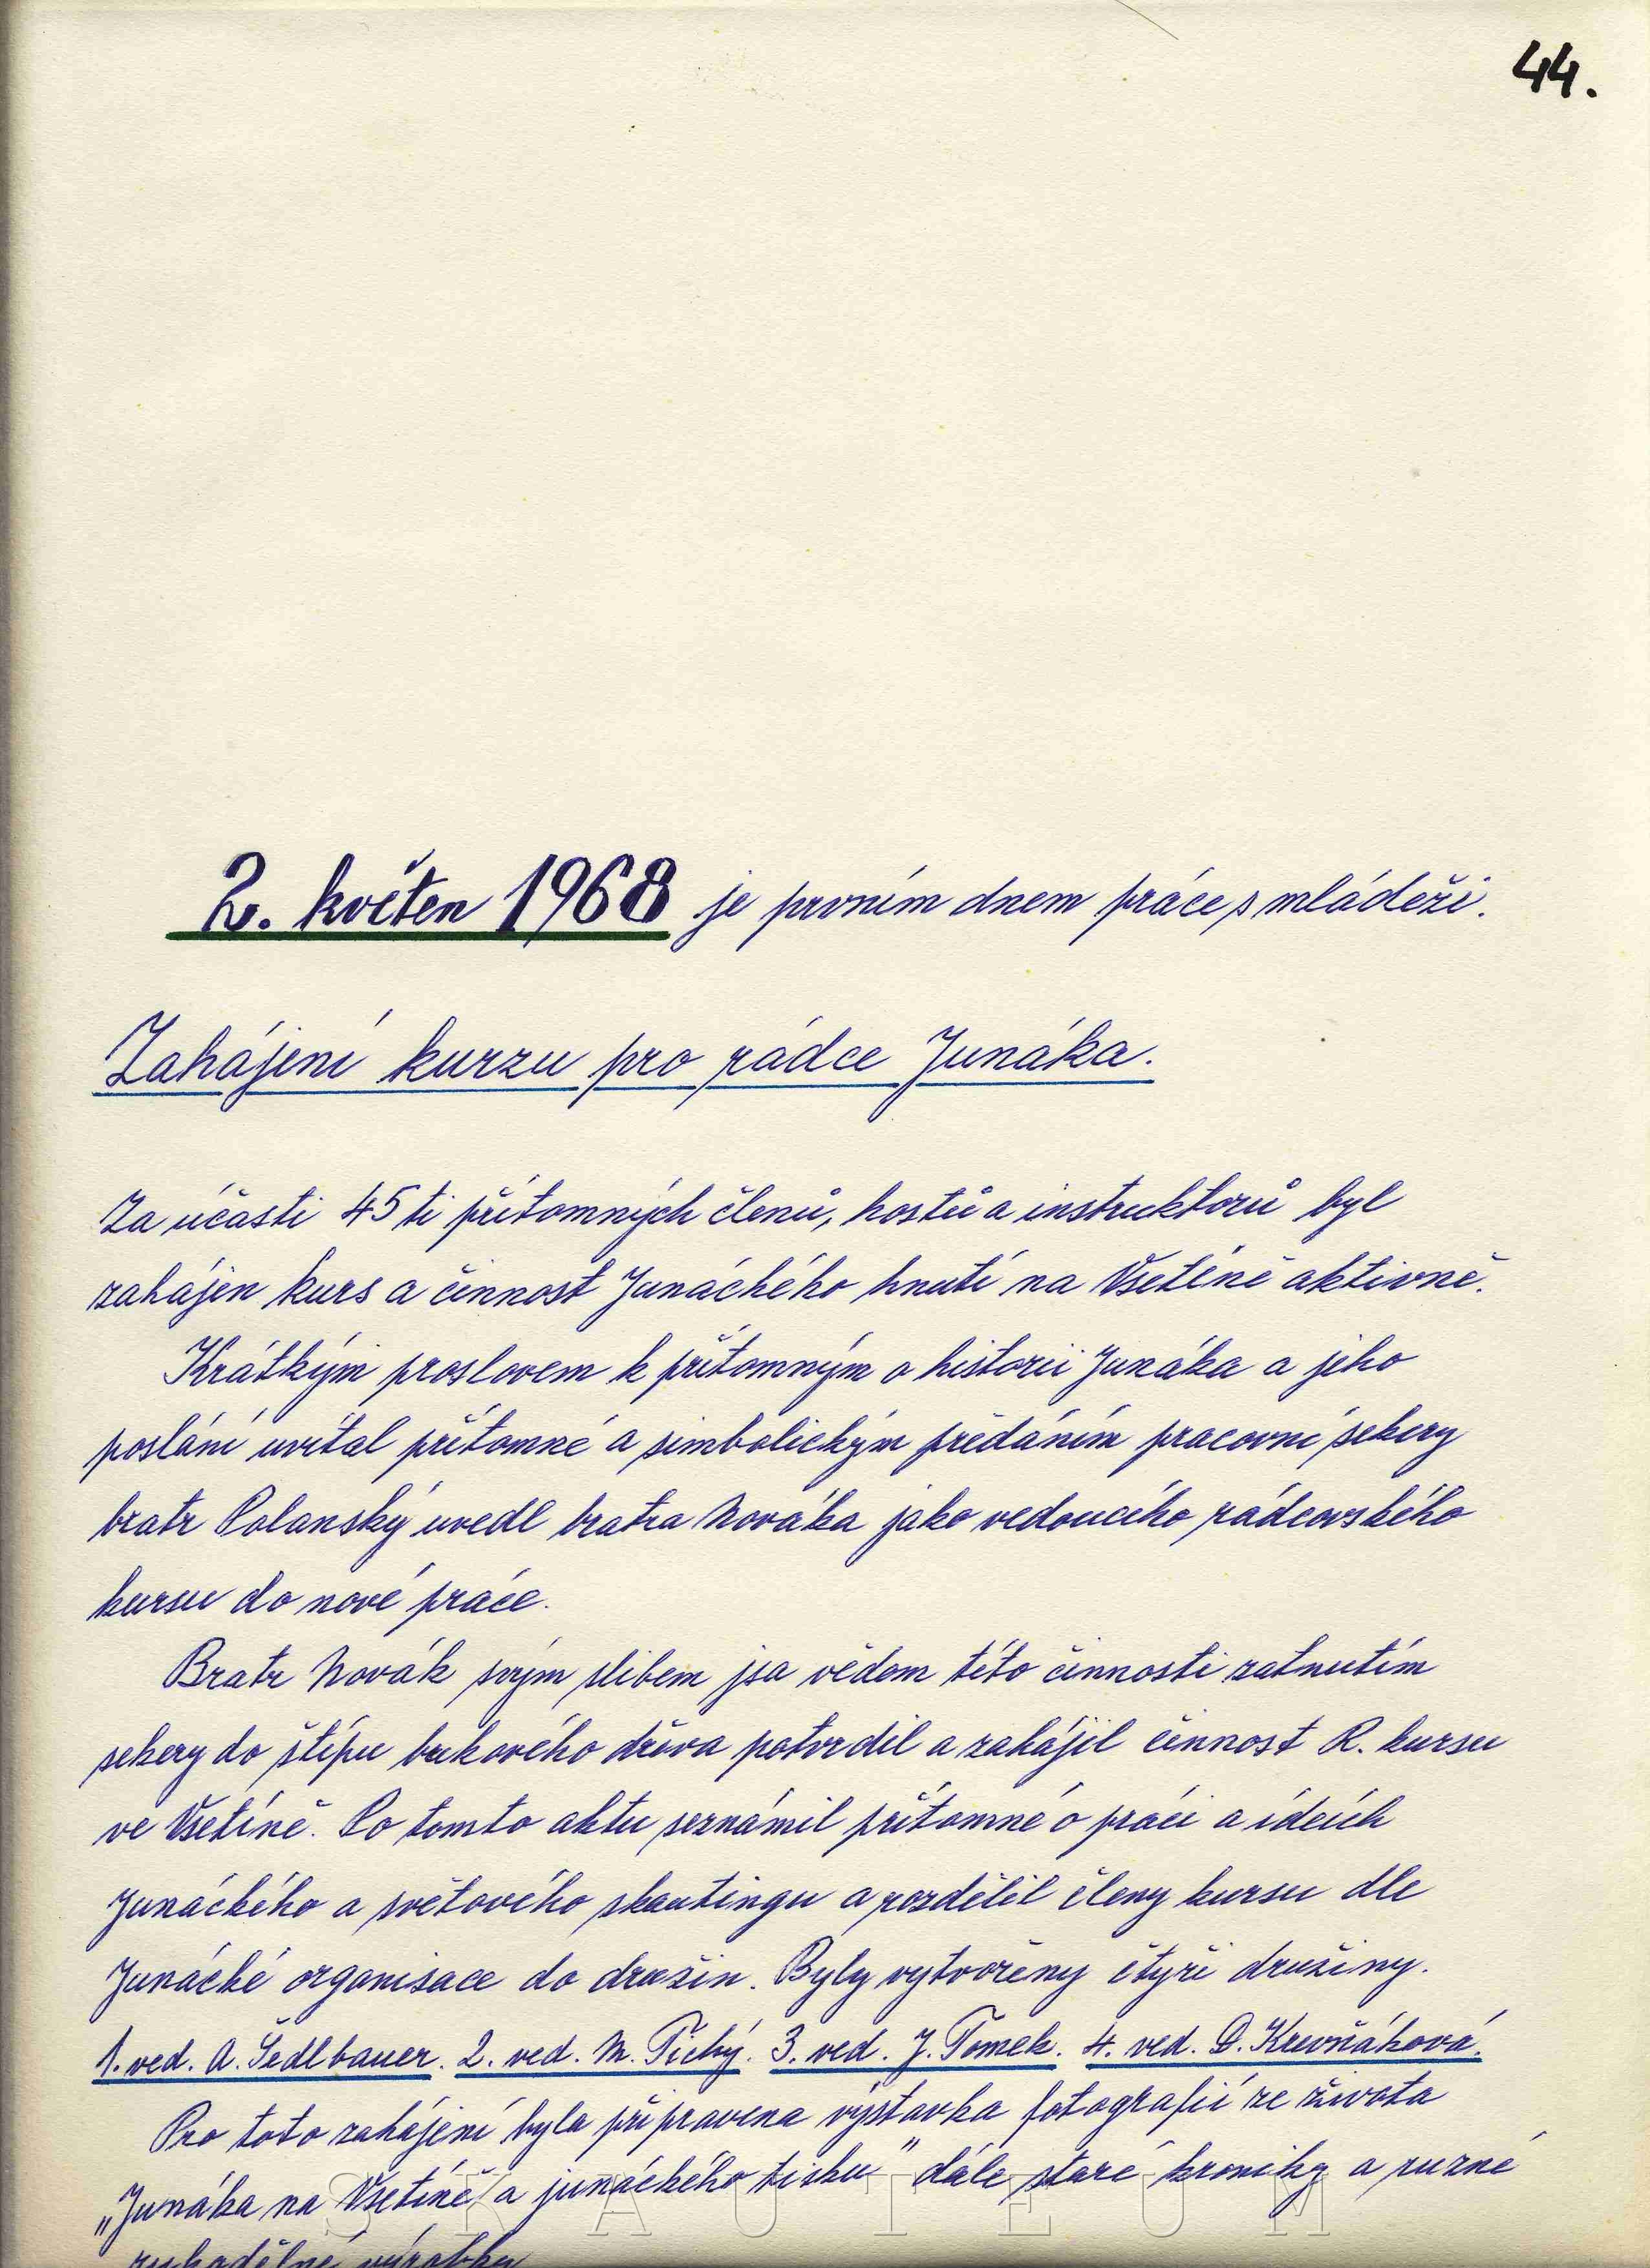 44.
2. květen 1968 je prvním dnem práce s mládeži.
Zahájení kurzu pro rádce Junáka.
Za účasti 45 ti přítomných členů, hostů a instruktorů byl
zahájen kurs a činnost Junáckého hnutí na Vsetíně aktivně.
Krátkým proslovem k přítomným o historii Junáka a jeho
poslání uvítal přítomné a simbolickým předáním pracovní sekery
bratr Polanský uvedl bratra Nováka jako vedoucího rádcovského
kursu do nové práce.
Bratr Novák svým slibem jsa vědom této činnosti zatnutím
sekery do štípu bukového dřeva potvrdil a zahájil činnost R. kursu
ve Vsetíně. Po tomto aktu seznámil přítomné o práci a ideích
Junáckého a světového skautingu a rozdělil členy kursu dle
Junácké organisace do družin. Byly vytvořeny čtyři družiny.
1. ved. A. Šedlbauer. 2. ved. M. Tichý. 3. ved. J. Tomek. 4. ved. D. Křivňáková.
Pro toto zahájení byla připravena výstavka fotografií ze života
„Junáka na Vsetíně a junáckého tisku" dále staré kroniky a ruzné
rukodělné výrobky
SKAUTEUM